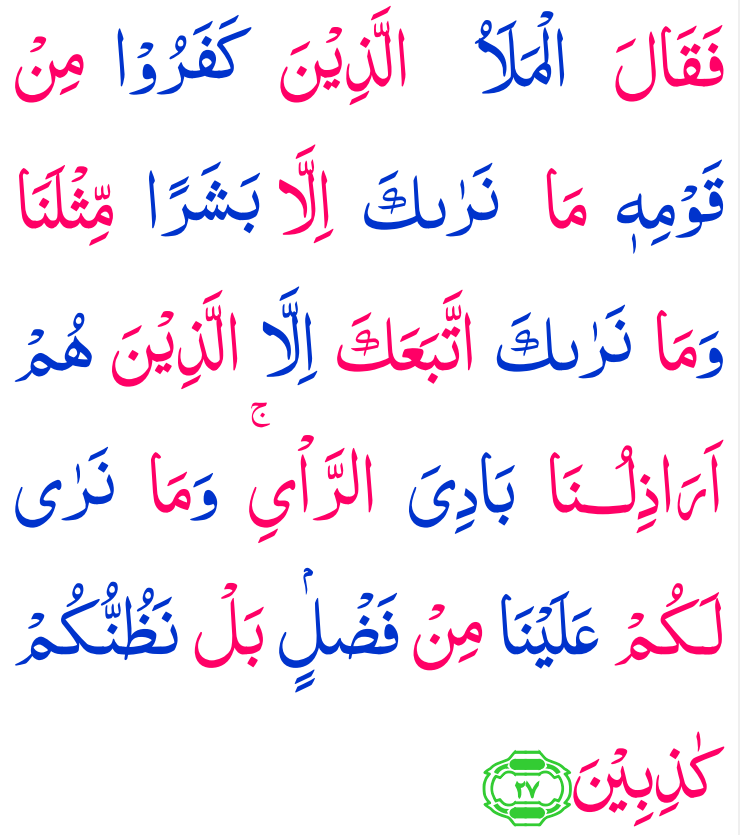 فَقَالَ الْمَلَاُ الَّذِيْنَ كَفَرُوْا مِنْ
قَوْمِهٖ مَا نَرٰىكَ اِلَّا بَشَرًا مِّثْلَنَا
وَمَا نَرٰىكَ اتَّبَعَكَ اِلَّا الَّذِيْنَ هُمْ
اَرَاذِلُــنَا بَادِىَ الرَّاْيِ ۚ وَمَا نَرٰى
لَـكُمْ عَلَيْنَا مِنْ فَضْلٍۢ بَلْ نَظُنُّكُمْ
كٰذِبِيْنَ ﴿۲۷﴾